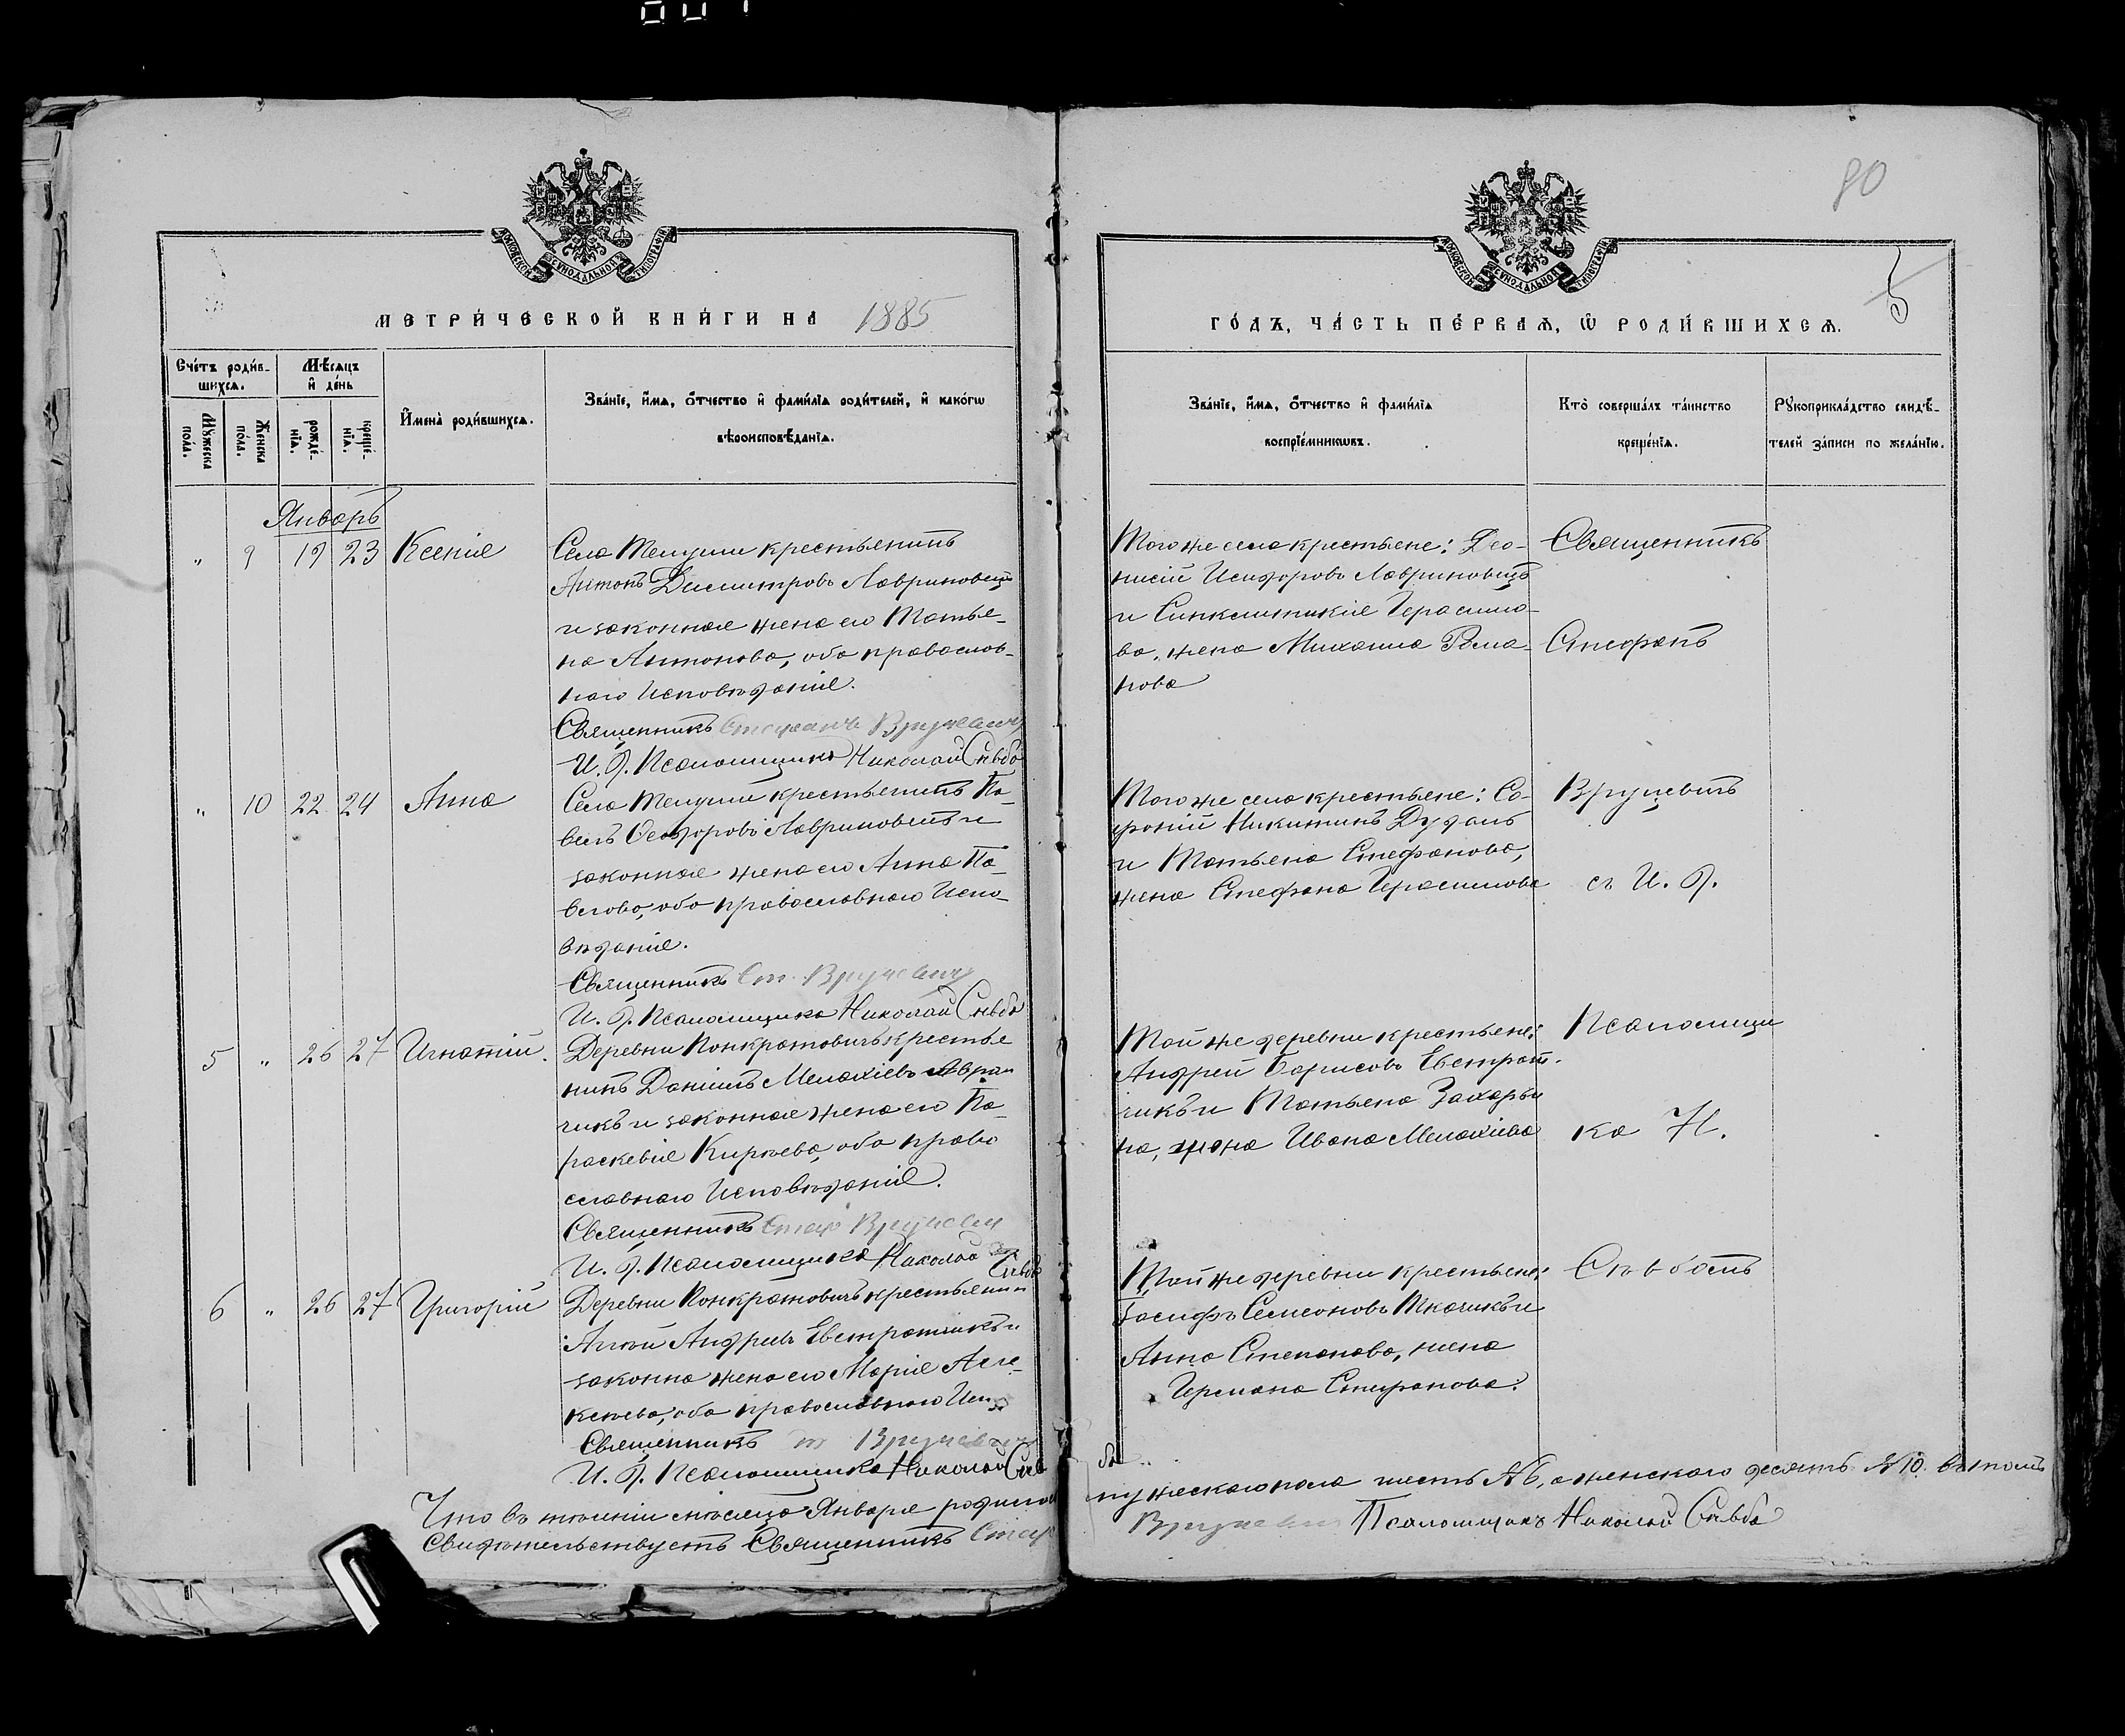 МОСКОВСКОЙ СѴНОДАЛЬНОЙ ТИПОГРАФІИ
МЕТРИ́ЧЕСКОЙ КНИ́ГИ НА 1885
Сче́тъ роди́в-
шихсѧ.
Мѣ́сѧцъ
и҆ де́нь
Мꙋ́жеска
по́ла.
Же́нска
по́ла.
рожде́-
нїѧ.
креще́-
нїѧ.
И҆мена̀ роди́вшихсѧ.
Зва́нїе, и҆́мѧ, ѻ҆́тчество и҆ фами́лїѧ роди́телей, и҆ како́гѡ
вѣроисповѣ́данїѧ.
Январь
" 9 19 23 Ксенія
Села Телуши крестьянинъ
Антонъ Димитровъ Лавриновичъ
и законная жена его Татья-
на Антонова, оба православ-
наго Исповѣданія.
Священникъ Стефанъ Вручевичъ
И. д. Псаломщика Николай Сѣвба
" 10 22 24 Анна
Села Телуши крестьянинъ Па-
велъ Ѳеодоровъ Лавриновичъ и
законная жена его Анна Па-
влова, оба православнаго Испо-
вѣданія.
Священникъ Ст. Вручевичъ
И. д. Псаломщика Николай Сѣвба
5 " 26 27 Игнатій.
Деревни Панкратовичъ крестья
нинъ Даніилъ Мелахіевъ Авра
чикъ и законная жена его Па-
раскевія Кирѣева, оба право
славнаго Исповѣданія.
Священникъ Стеф Вручевич
И. д. Псаломщика Николай Сѣвба
6 " 26 27 Григорій
Деревни Панкратовичъ крестьянин
Андреевъ Евстратчикъ и
законна жена его Марія Але-
ксѣева, оба православнаго Исп
Священникъ Вручевич
И. д. Псаломщика Николай Сѣв
Что въ теченіи мѣсяца Января родилось
Свидѣтельствуетъ Священникъ Стеф
80
5
МОСКОВСКОЙ СѴНОДАЛЬНОЙ ТИПОГРАФІИ
ГО́ДЪ, ЧА́СТЬ ПЕ́РВАѦ, Ѡ҆ РОДИ́ВШИХСѦ.
Зва́нїе, и҆́мѧ, ѻ҆́тчество и҆ фами́лїѧ
воспрїе́мникѡвъ.
Кто̀ соверша́лъ та́инство
креще́нїѧ.
Рꙋкоприкла́дство свидѣ́-
телей за́писи по жела́нїю.
Того же села крестьяне: Део-
нисій Исидоровъ Лавриновичъ
и Синклитикія Герасимо-
ва, жена Михаила Рома-
нова
Того же села крестьяне: Со-
фроній Никитинъ
и Татьяна Стефанова,
жена Стефана Герасимова
Той же деревни крестьяне:
Андрей Борисовъ Евстрат-
чикъ и Татьяна Захарьи
на, жена Ивана Мелахіева
Той же деревни крестьяне:
Іосифъ Семеоновъ Ткачикъ и
Анна Степанова, жена
Германа Стефанова.
Священникъ
Стефанъ
Вручевичъ
съ И. д.
Псаломщи
ка Н.
Сѣвбою
мужескаго пола шесть №6, а женскаго десять №10. въ томъ
Вручевичъ Псаломщикъ Николай Сѣвба